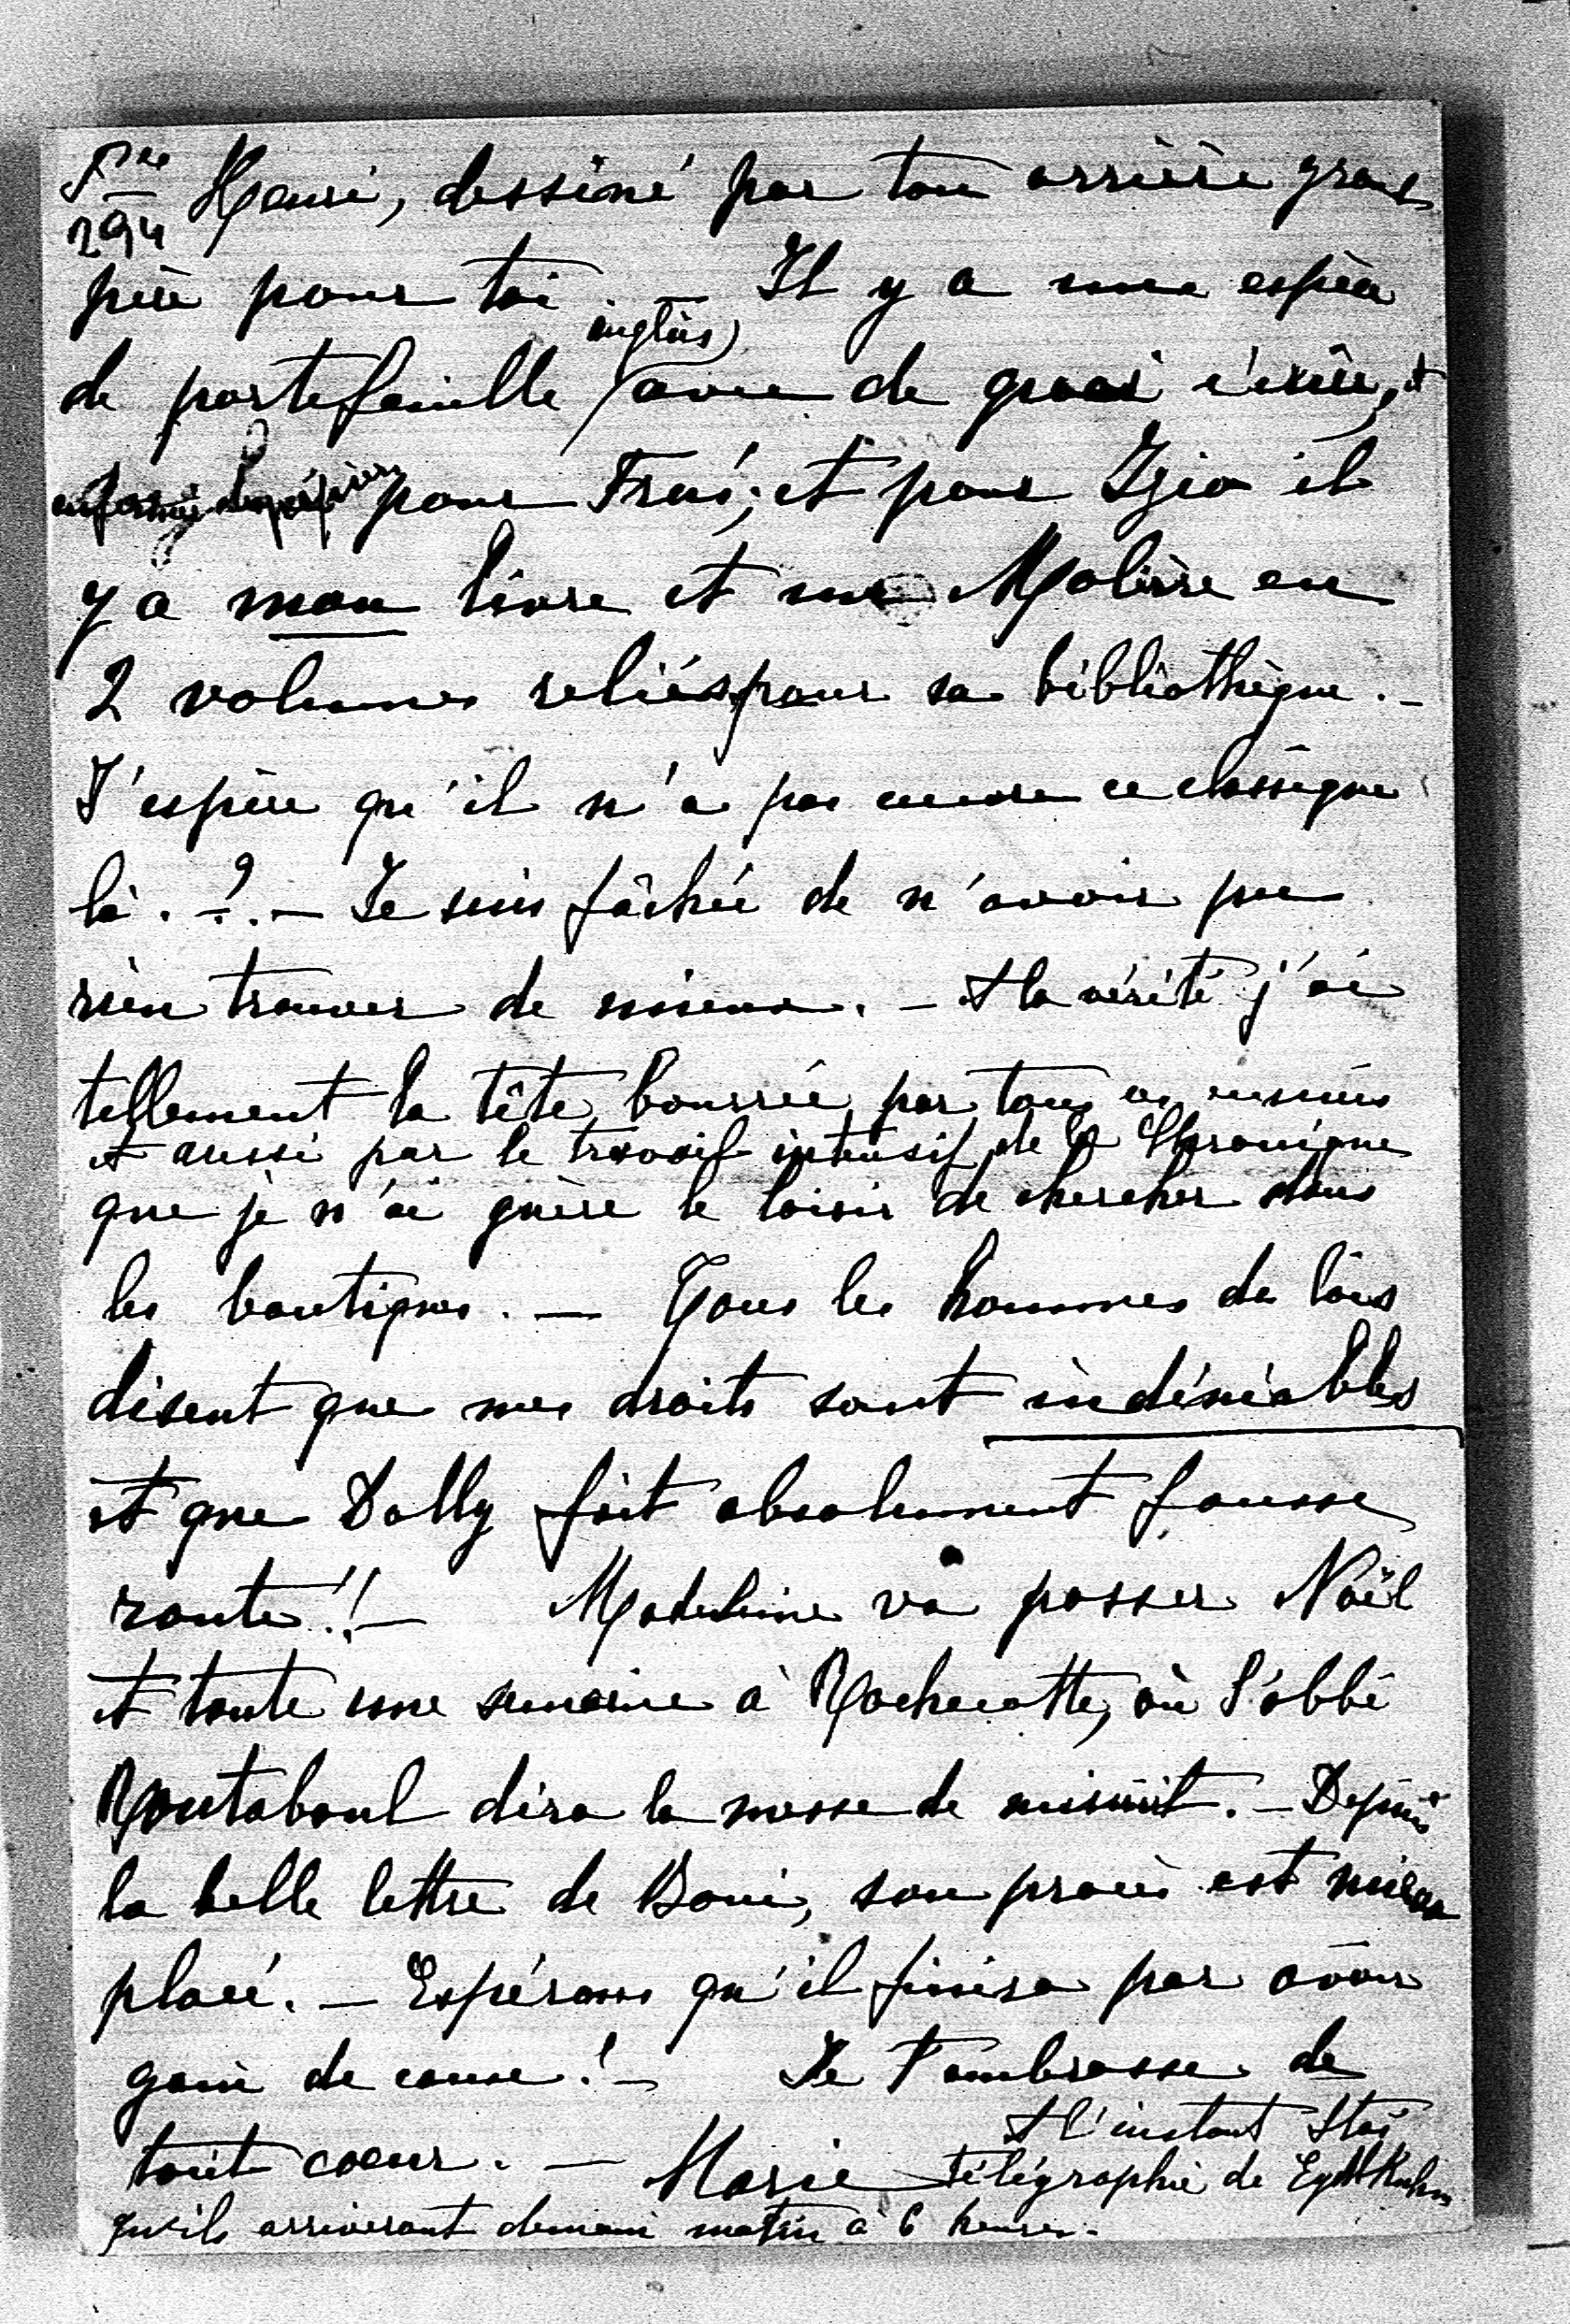 Henri, dessiné par ton arrière grand
père pour toi. — Il y a une espèce
anglais
de portefeuille avec de quoi écrire, et
pour Fraś; et pour Izio il
y a mon livre et un Molière en
2 volumes reliés pour sa bibliothèque. —
J'espère qu'il n'a pas encore ce classique
là. ? — Je suis fâchée de n'avoir pu
rien trouver de mieux. — A la vérité j'ai
tellement la tête bourrée par tous ces ennuis
et aussi par le travail intensif de la Chronique
que je n'ai guère le loisir de chercher dans
les boutiques. — Tous les hommes de lois
disent que mes droits sont indéniables
et que Dolly fait absolument fausse
route!! — Madeleine va passer Noël
et toute une semaine à Rochecotte, où l'abbé
Montaboul dira la messe de minuit. — Depuis
la belle lettre de Boni, son procès est mieux
placé. — Espérons qu'il finira par avoir
gain de cause! — Je t'embrasse de
tout coeur. — Marie
A l'instant Staś
télégraphie de Eydtkuhn
qu'ils arriveront demain matin à 6 heures. —